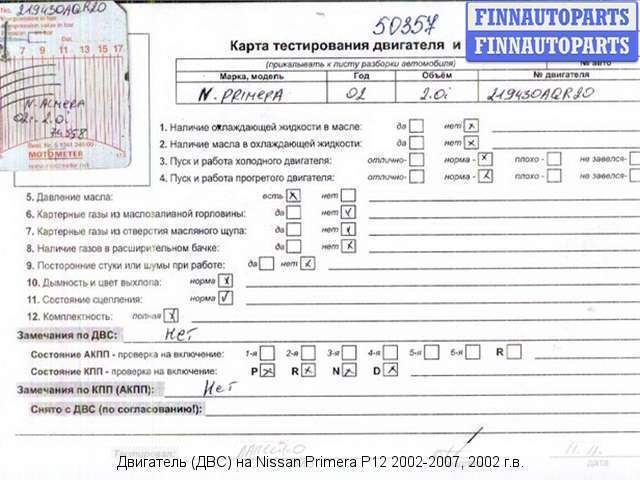 No. 219430AQR20
7 9 11 13 15 17
N. ALMERA
02г. 2.0i
74558
Best. Nr. 5 1041 240 00
MOTOMETER
50357
FINNAUTOPARTS
FINNAUTOPARTS
Карта тестирования двигателя и
(прикалывать к листу разборки автомобиля)
№ авто
Марка, модель Год Объём № двигателя
N. PRIMERA 02 2.0i 219430AQR20
1. Наличие охлаждающей жидкости в масле: да нет x
2. Наличие масла в охлаждающей жидкости: да нет x
3. Пуск и работа холодного двигателя: отлично- норма - x плохо - не завелся-
4. Пуск и работа прогретого двигателя: отлично- норма - x плохо - не завелся-
5. Давление масла: есть x нет
6. Картерные газы из маслозаливной горловины: да нет v
7. Картерные газы из отверстия масляного щупа: да нет x
8. Наличие газов в расширительном бачке: да нет x
9. Посторонние стуки или шумы при работе: да нет x
10. Дымность и цвет выхлопа: норма x
11. Состояние сцепления: норма v
12. Комплектность: полная x
Замечания по ДВС: Нет
Состояние АКПП - проверка на включение: 1-я 2-я 3-я 4-я 5-я 6-я R
Состояние КПП - проверка на включение: P x R x N x D x
Замечания по КПП (АКПП): Нет
Снято с ДВС (по согласованию!):
Тестировал:
Двигатель (ДВС) на Nissan Primera P12 2002-2007, 2002 г.в.